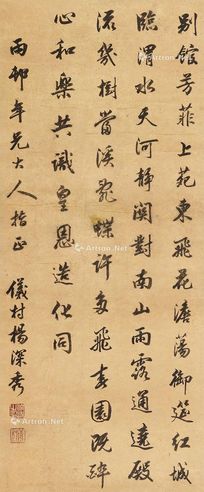 別館芳菲上苑東飛花澹蕩御筵紅城
臨渭水天河靜闕對南山雨露通遶殿
流幾樹當溪亂蝶許多飛春園既醉
心和樂共識皇恩造化同
雨邨年兄大人指正
儀村楊深秀